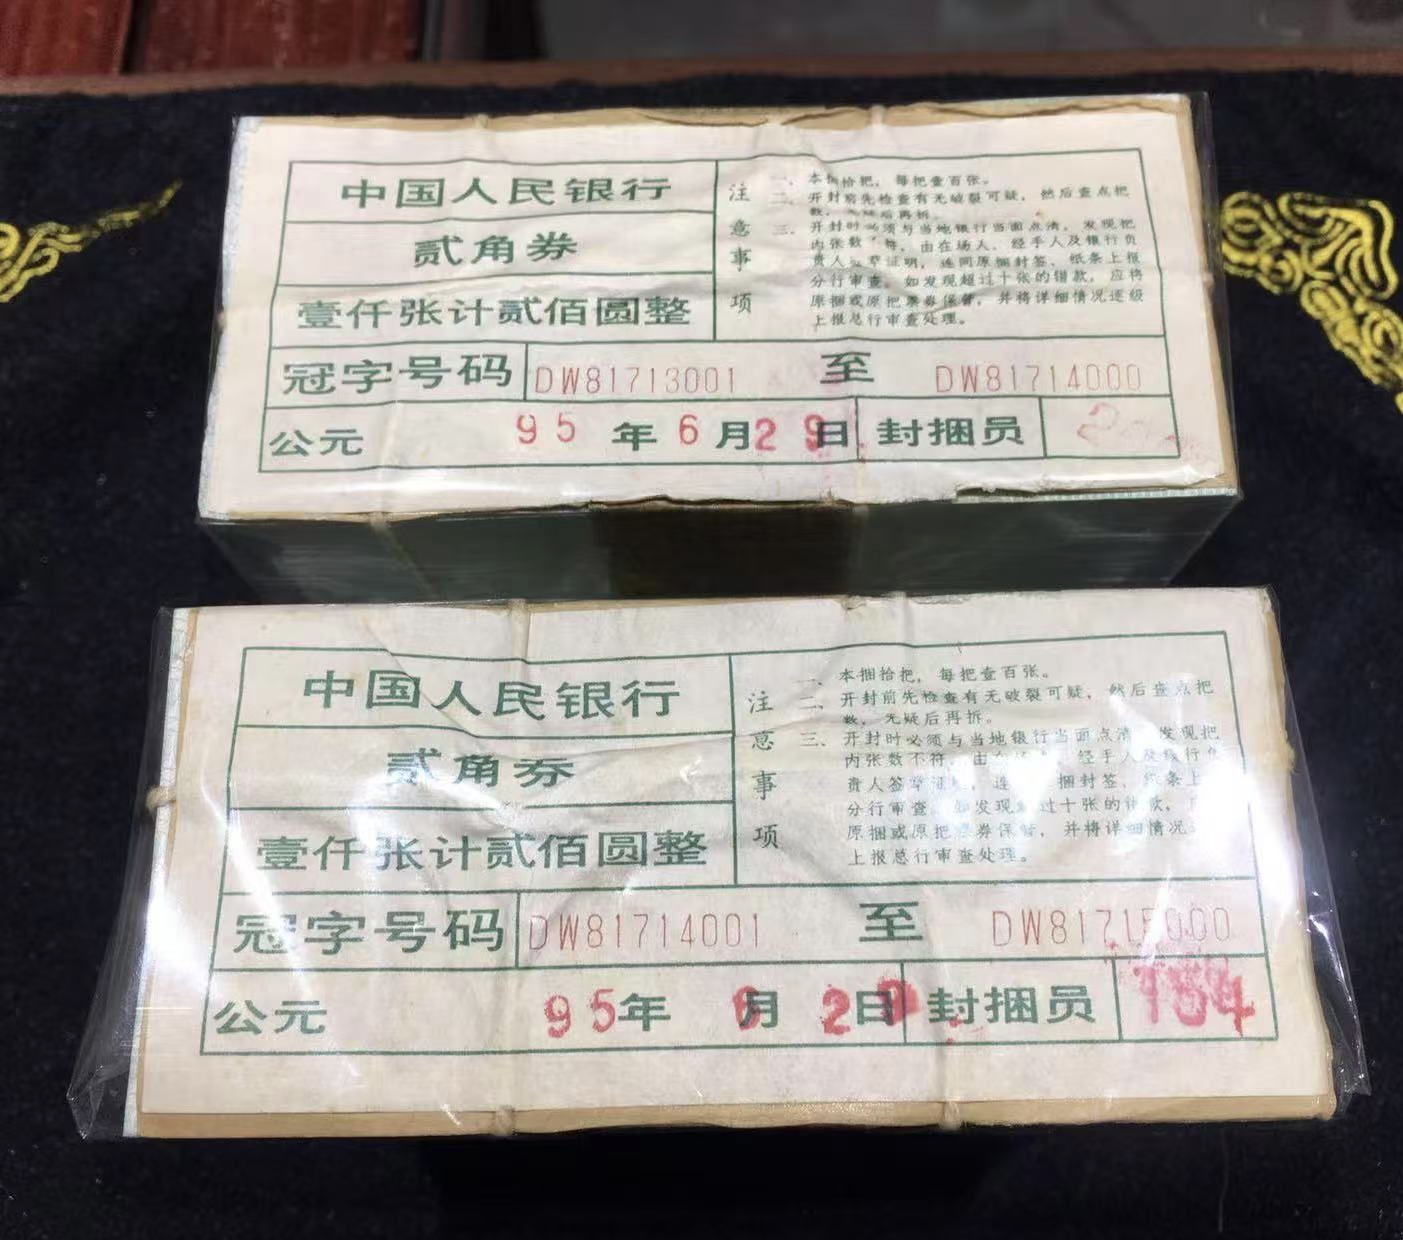 中国人民银行
贰角券
壹仟张计贰佰圆整
注意事项
一、本捆拾把，每把壹百张。
二、开封前先检查有无破裂可疑，然后查点把
数，无疑后再拆。
三、开封时必须与当地银行当面点清，发现把
内张数不符，由在场人、经手人及银行负
责人签章证明，连同原捆封签、纸条上报
分行审查。如发现超过十张的错款，应将
原捆或原把票券保留，并将详细情况逐级
上报总行审查处理。
冠字号码 DW81713001 至 DW81714000
公元 95 年 6 月 29 日 封捆员
中国人民银行
贰角券
壹仟张计贰佰圆整
注意事项
一、本捆拾把，每把壹百张。
二、开封前先检查有无破裂可疑，然后查点把
数，无疑后再拆。
三、开封时必须与当地银行当面点清 发现把
内张数不符，由 经手人及银行负
责人签章证 连 捆封签、纸条上
分行审查。如发现 过十张的错款，
原捆或原把票券保留，并将详细情况
上报总行审查处理。
冠字号码 DW81714001 至 DW81715000
公元 95 年 6 月 2 日 封捆员 184